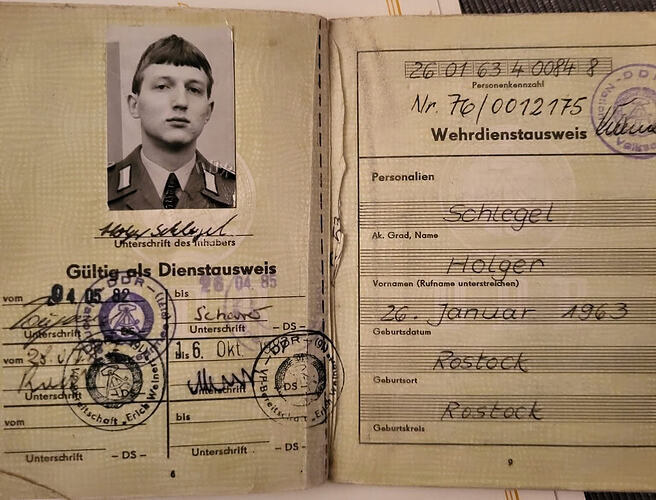 Holger Schlegel
Unterschrift des Inhabers
Gültig als Dienstausweis
vom 04.05.82 bis 26.04.85
Unterschrift Unterschrift - DS -
vom bis 16. Okt.
Unterschrift Unterschrift - DS -
vom bis
Unterschrift - DS - Unterschrift - DS -
6
26 01 63 4 0084 8
Personenkennzahl
Nr. 76/0012175
Wehrdienstausweis
Personalien
Schlegel
Ak. Grad, Name
Holger
Vornamen (Rufname unterstreichen)
26. Januar 1963
Geburtsdatum
Rostock
Geburtsort
Rostock
Geburtskreis
9